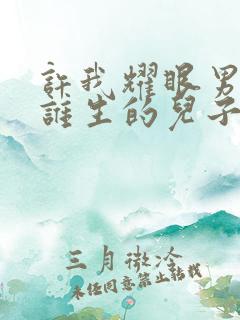 許我耀眼男
誰生的兒子
三月微冷
未經同意禁止轉載